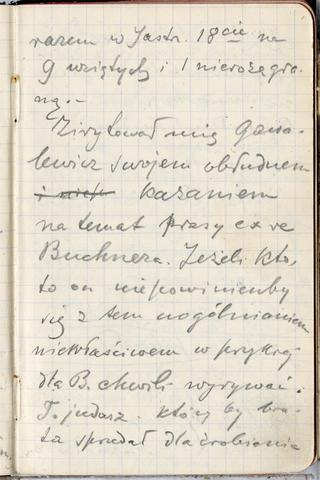 razem w Jastr. 18cie na
9 wziętych i 1 nierozegra-
ną.-
Zirytował mię Gawa-
lewicz swojem obłudnem
kazaniem
na temat prasy ex re
Buchnera. Jeżeli kto,
to on niepowinienby
się z tem uogólnianiem
niewłaściwem w przykrej
dla B. chwili wyrywać.
To judasz, który by bra-
ta sprzedał dla zrobienia